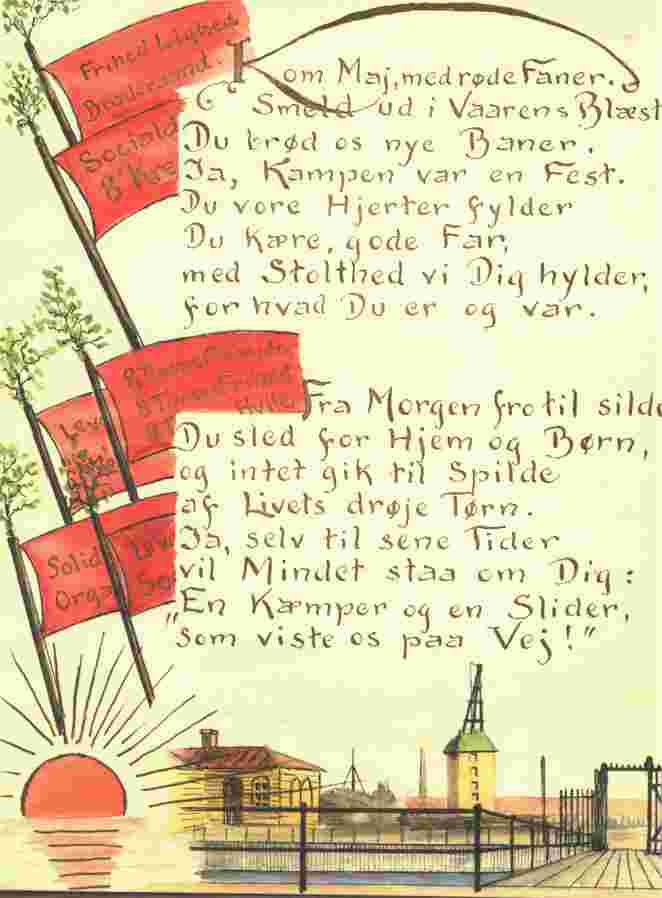 Frihed Lighed
Broderskab.
Social
I om Maj, med røde Faner.
Smeld ud i Vaarens Blæst
Du brød os nye Baner.
Ja, Kampen var en Fest.
Du vore Hjerter fylder
Du kære, gode Far,
med Stolthed vi Dig hylder,
for hvad Du er og var.
8 Timers
8 Timers Frihed
Hvile
Leve
Fra Morgen fro til silde
Du sled for Hjem og Børn,
og intet gik til Spilde
af Livets drøje Tørn.
Ja, selv til sene Tider
vil Mindet staa om Dig:
„En Kæmper og en Slider,
som viste os paa Vej!"
Solid
Orga
Leve
So